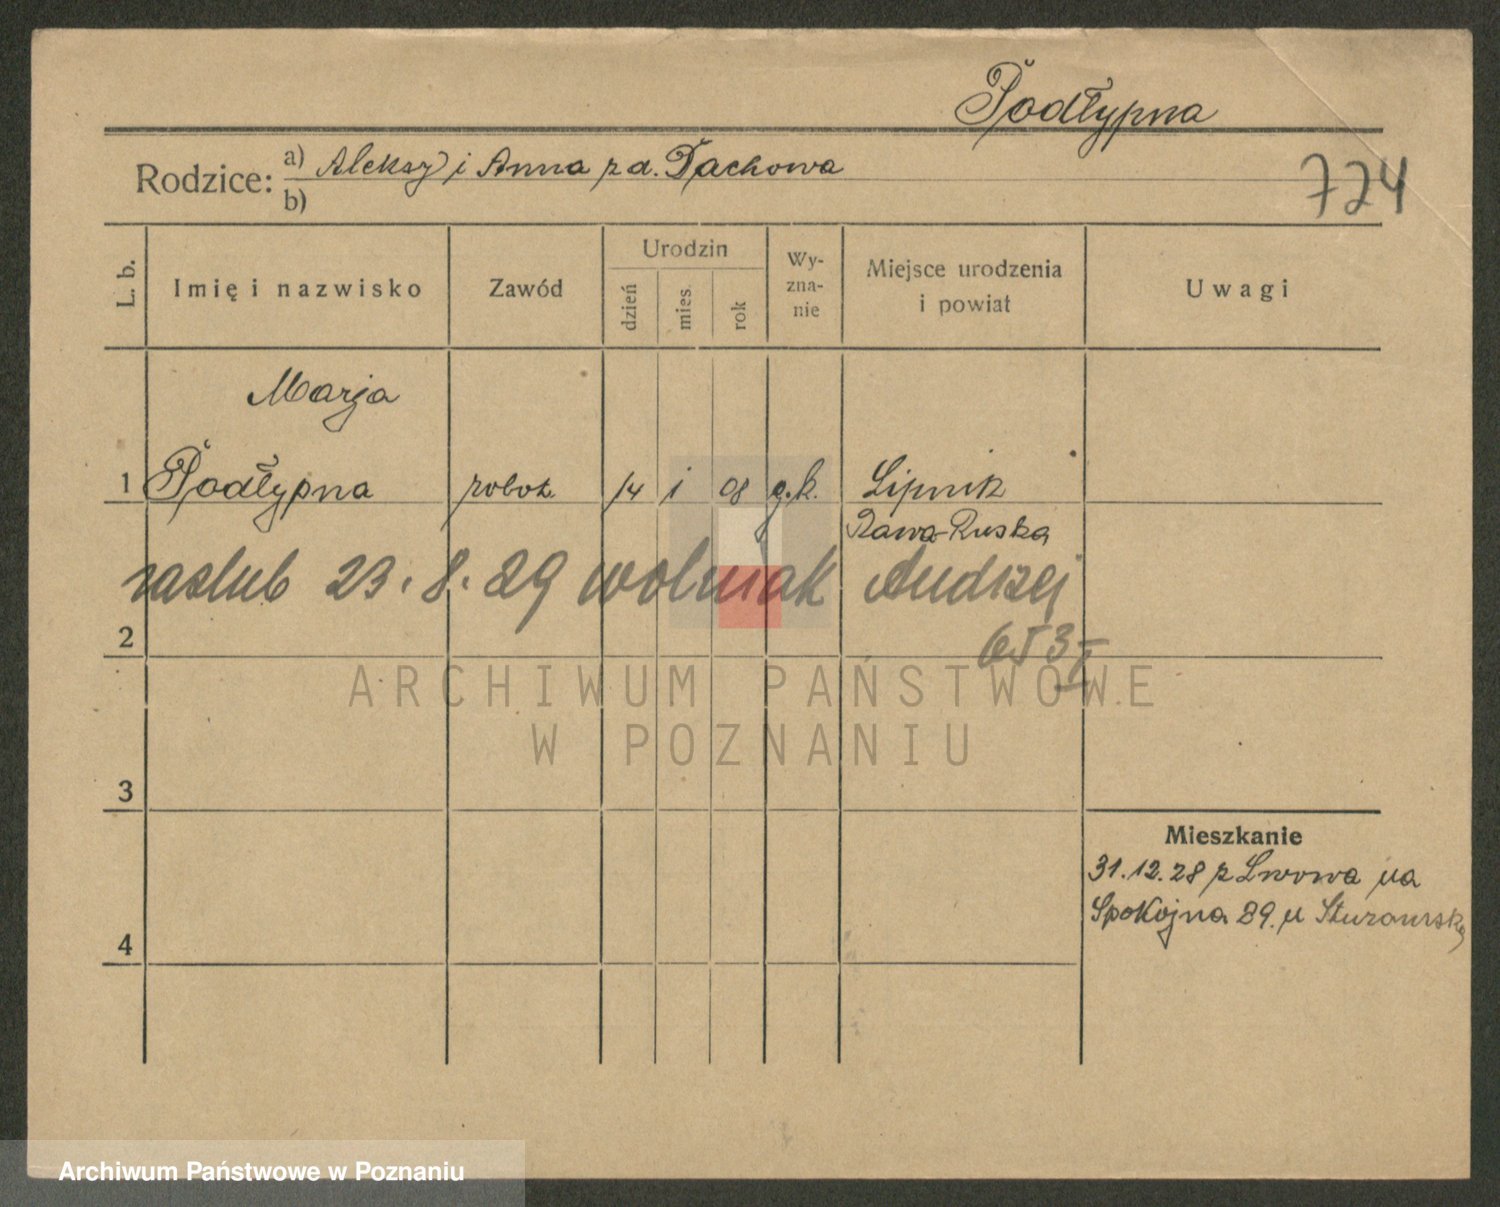 Podłypna
Rodzice: a) Aleksy i Anna z d. Tachowa
b)
724
L. b.
Imię i nazwisko
Zawód
Urodzin
dzień
mies.
rok
Wy-
zna-
nie
Miejsce urodzenia
i powiat
Uwagi
Marja
1 Podłypna robot. 14 i 08 g.k. Lipnik
Rawa-Ruska
zaslub 23.8.29 Wolniak Andrzej
2
ARCHIWUM PAŃSTWOWE
W POZNANIU
3
Mieszkanie
31.12.28 z Lwowa na
Spokojna 29. u
4
Archiwum Państwowe w Poznaniu